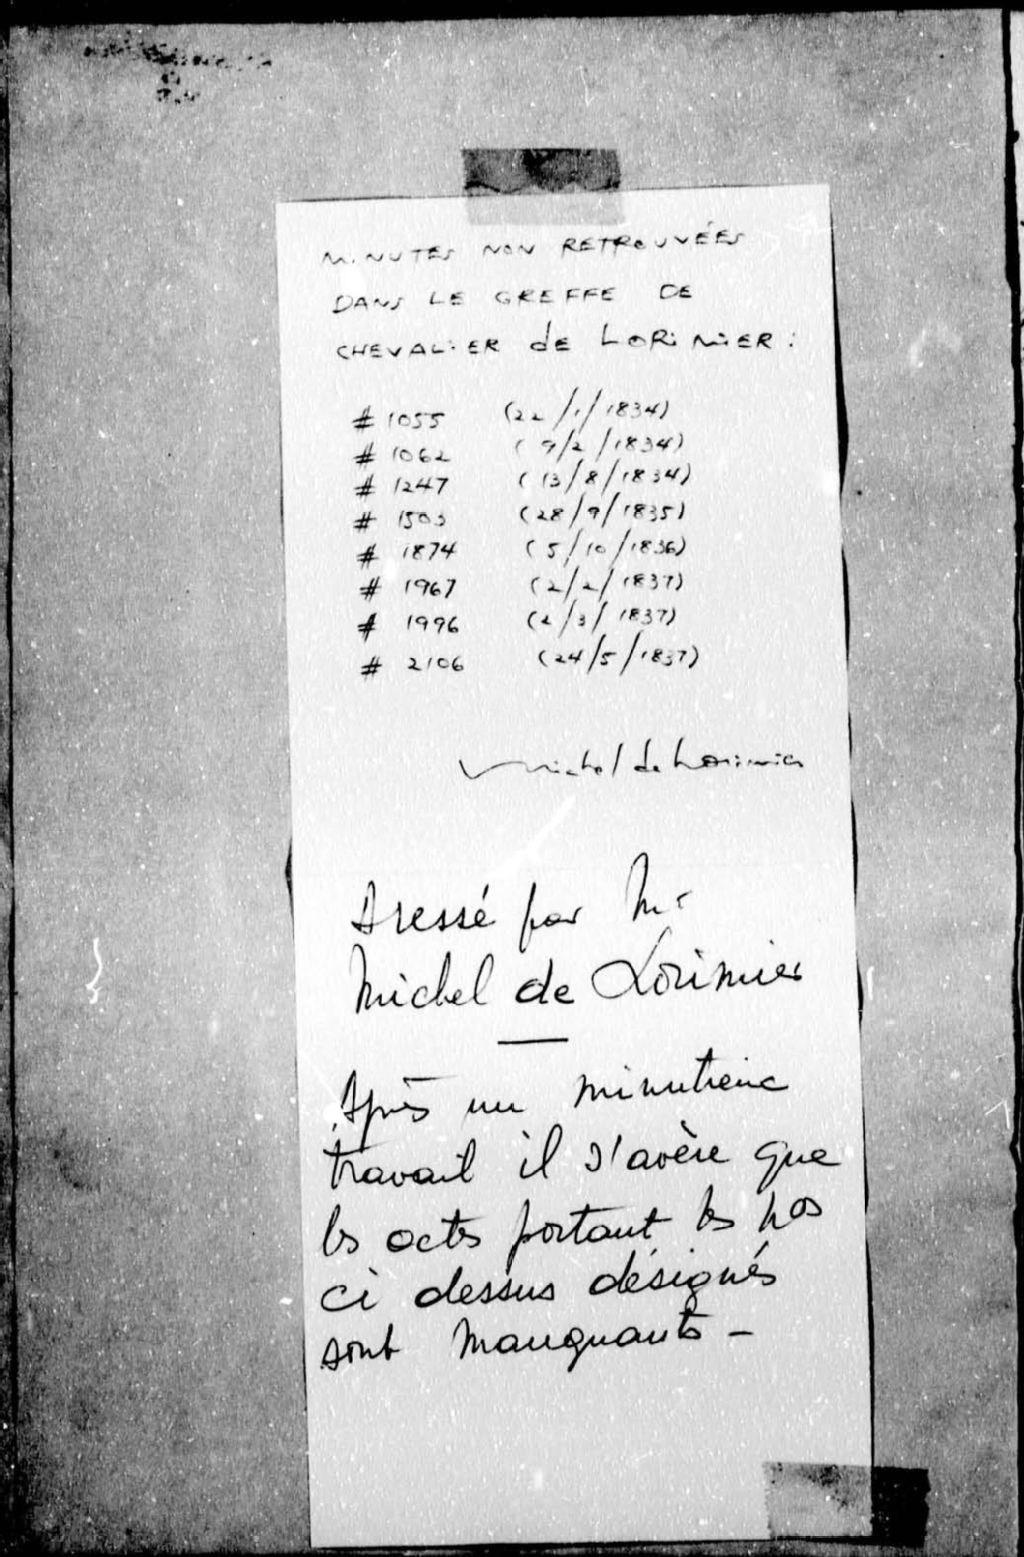 MINUTES NON RETROUVÉES
DANS LE GREFFE DE
CHEVALIER de LORIMIER :
# 1055 (22/1/1834)
# 1062 (9/2/1834)
# 1247 (13/8/1834)
# 1503 (28/9/1835)
# 1874 (5/10/1836)
# 1967 (2/2/1837)
# 1996 (2/3/1837)
# 2106 (24/5/1837)
Michel de Lorimier
Dressé par Mr
Michel de Lorimier
Après un minutieux
travail il s'avère que
les actes portant les nos
ci dessus désignés
sont manquants -